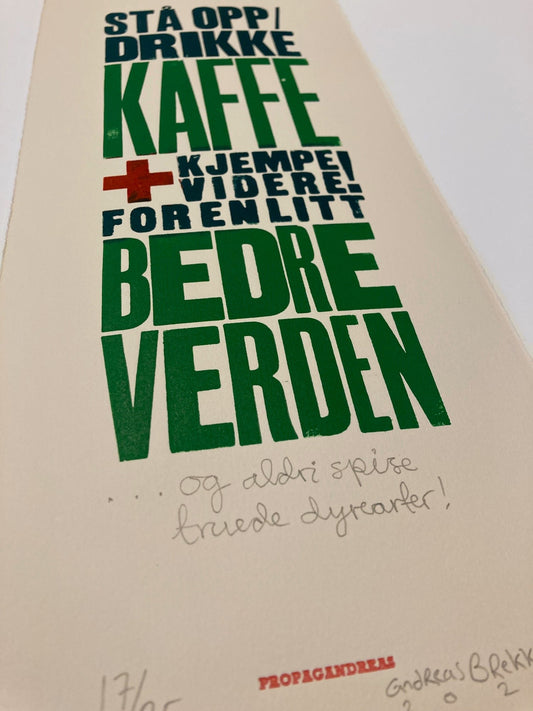 STÅ OPP/
DRIKKE
KAFFE
+ KJEMPE
VIDERE!
FOR EN LITT
BEDRE
VERDEN
... og aldri spise
truede dyrearter!
PROPAGANDREAS
17/
Andreas B Rekk
202